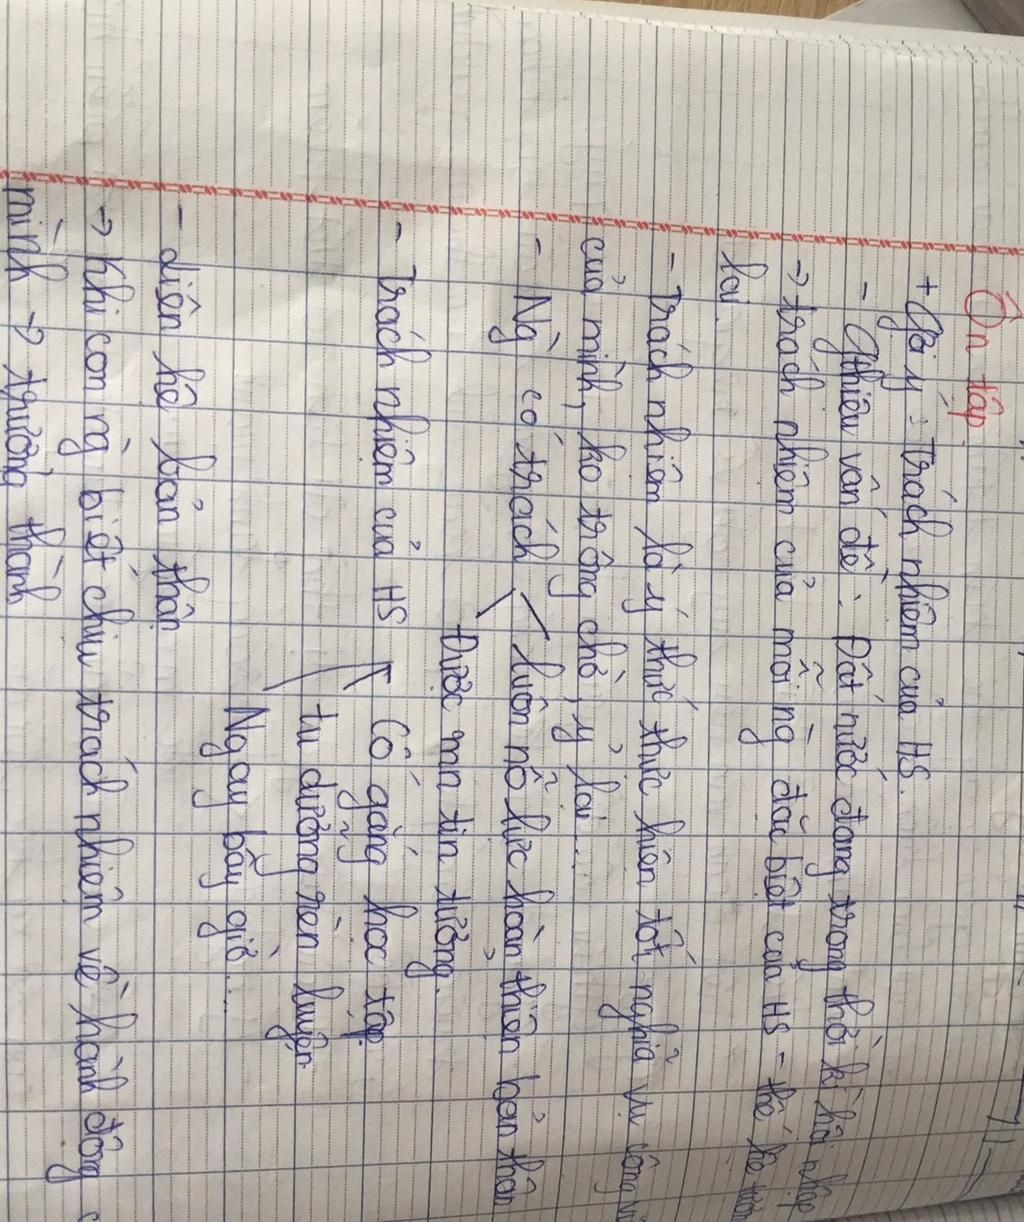 Ôn tập
+ Gợi ý: Trách nhiệm của HS.
- Gthiệu vấn đề: Đất nước đang trong thời kì hội nhập
→ trách nhiệm của mỗi ng đặc biệt của HS - thế hệ
lai.
- Trách nhiệm là ý thức thực hiện tốt nghĩa vụ công
của mình, ko trông chờ, ỷ lại...
- Ng có trách < luôn nỗ lực hoàn thiện bản thân
Được mn tin tưởng.
- Trách nhiệm của HS Cố gắng học tập
tu dưỡng rèn luyện
Ngay bây giờ...
- diên hê bản thân
→ Khi con ng biết chịu trách nhiệm về hành động
mình → trưởng thành